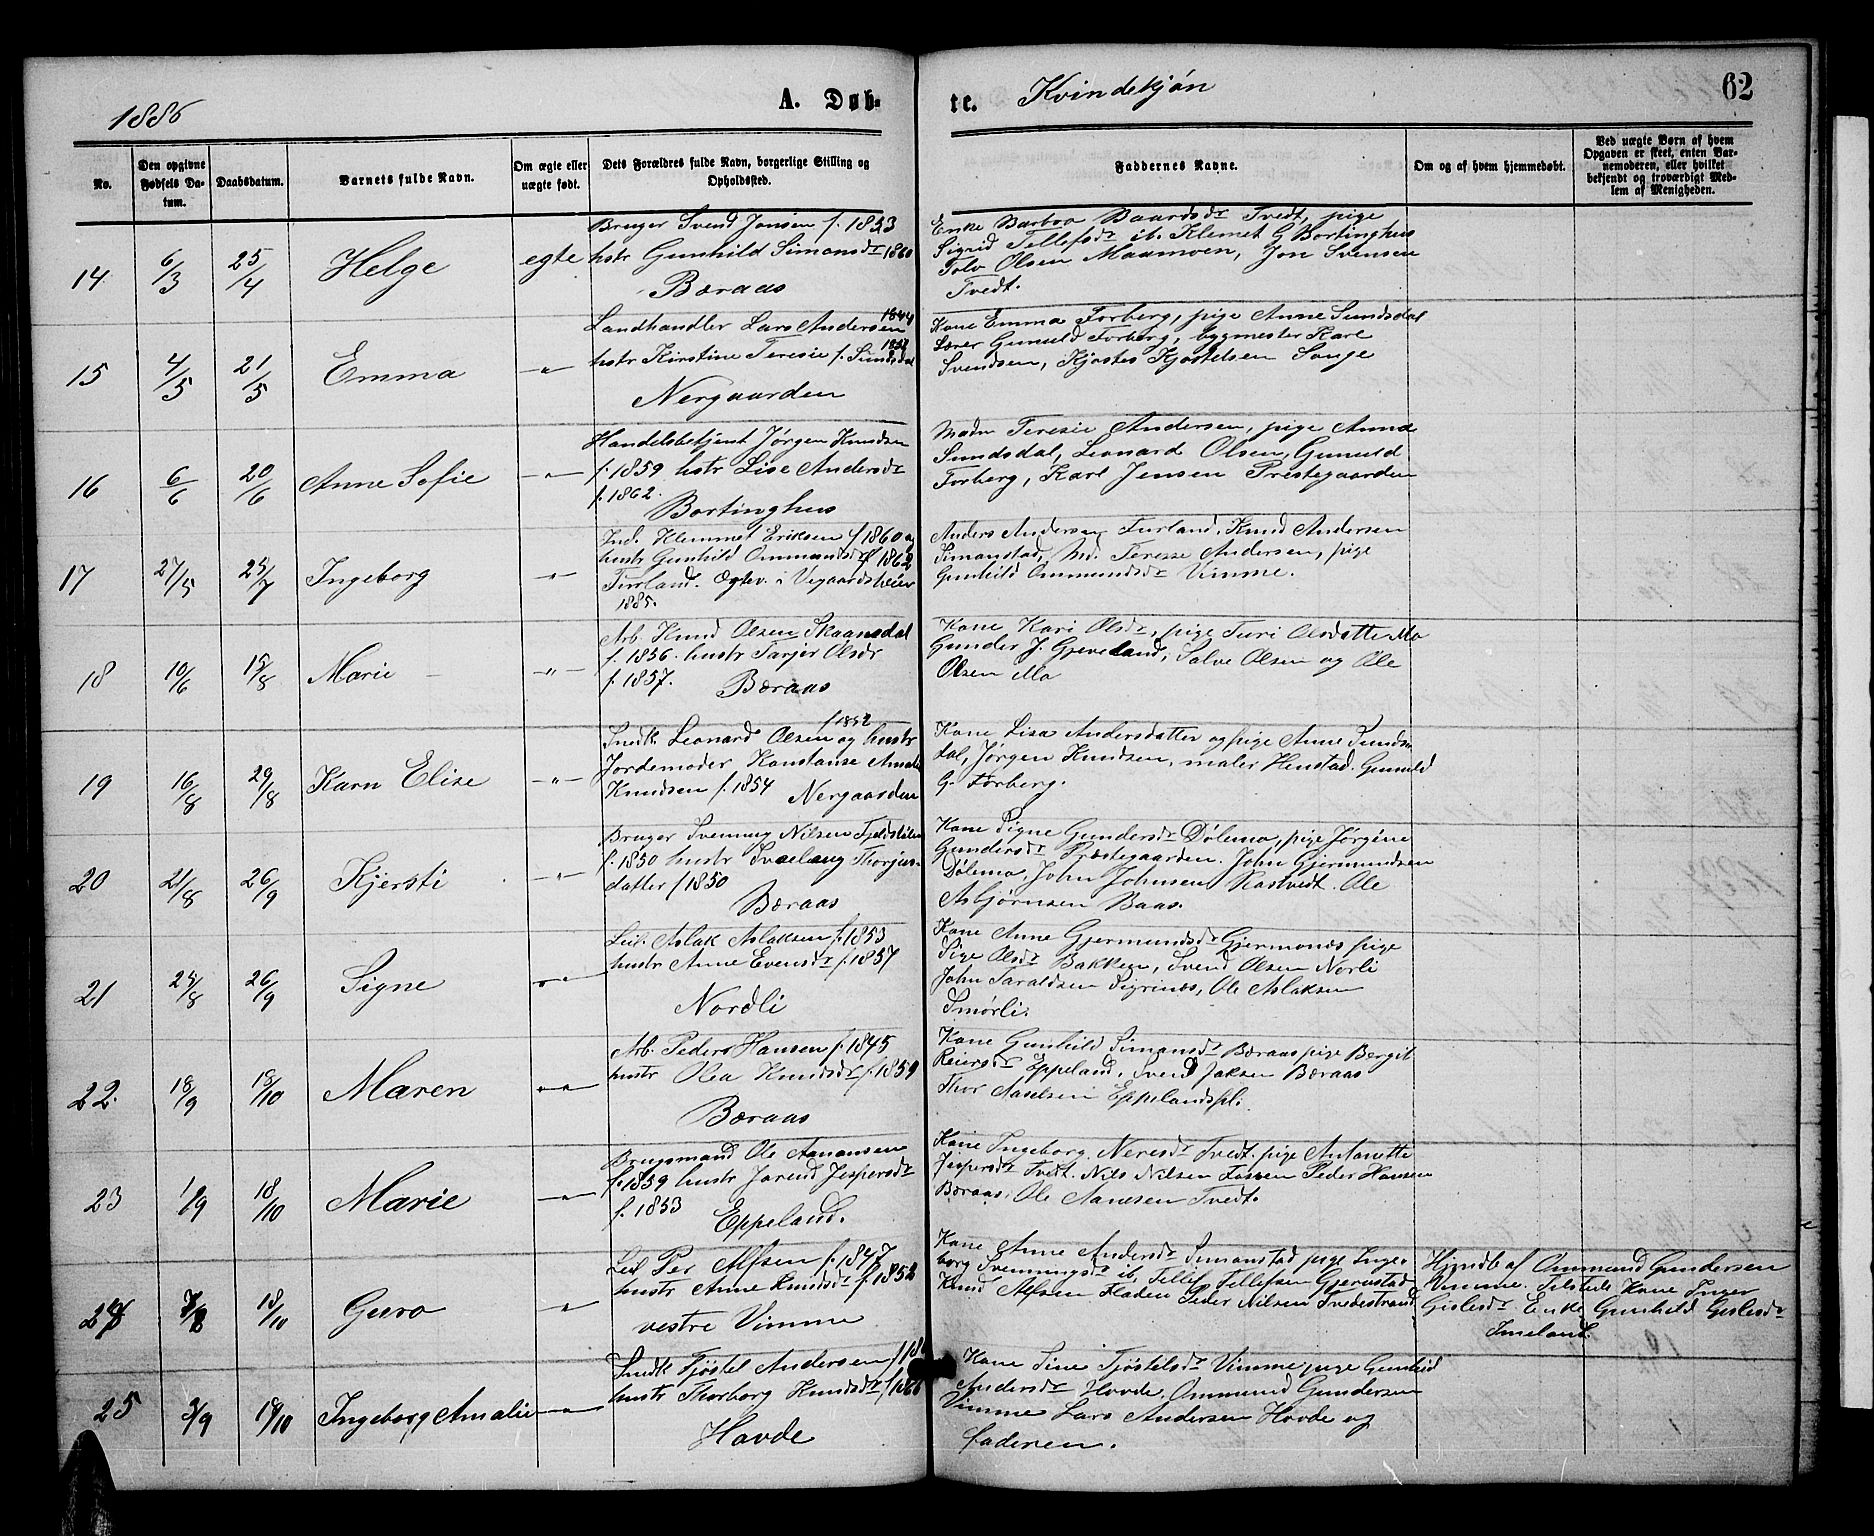 1886
A. Døb-
te. Kvindekjön
62
No.
Den opgivne Fødsels Da-
tum.
Daabsdatum.
Barnets fulde Navn.
Om ægte eller
uægte født.
Dets Forældres fulde Navn, borgerlige Stilling og
Opholdssted.
Faddernes Navne.
Om og af hvem hjemmedøbt.
Ved uægte Børn af hvem
Opgaven er skeet, enten Bar-
nemoderen, eller hvilket
bekjendt og troværdigt Med-
lem af Menigheden.
14 6/3 25/4 Helge egte
Bruger Svend Jonsen f. 1853
hstr Gunhild Simonsdr 1860
Bæraas
Enke Barbro Baardsdr Tvedt, pige
Sigrid Tellefsdr ib. Klemet G Bortinghus
Tolv Olsen Maamoen, Jon Svensen
Tvedt.
15 4/5 21/5 Emma -"-
Landhandler Lars Andersen 1844
hstr Kirstine Teresie f. Sundsdal
Nergaarden
Kone Emma Forberg, pige Anne Sundsdal
Lærer Gunuld Forberg, bygmester Karl
Svendsen, Kjøstes Kjøstelsen Songe
16 6/6 20/6 Anne Sofie -"-
Handelsbetjent Jørgen Knudsen
f. 1859 hstr Lise Andersdr
f. 1862.
Bortinghus
Madm Teresie Andersen, pige Anna
Sundsdal, Leonard Olsen, Gunuld
Forberg, Karl Jensen Prestegaarden
17 27/5 25/7 Ingeborg -"-
Ind. Klemmet Eriksen f 1860 og
hustr Gunhild Ommundsdr f 1862
Furland. Ægtev. i Vegaardsheien
1885.
Anders Andersen Furland, Knud Andersen
Simonstad, Md. Terese Andersen, pige
Gunhild Ommundsdr Vimme.
18 10/6 15/8 Marie -"-
Arb. Knud Olsen Skaansdal
f. 1856. hustr Tarjer Olsdr
f. 1857. Bæraas
Kone Kari Olsdr, pige Turi Olsdatter Mo
Gunder J. Gjeveland, Salve Olsen og Ole
Olsen Mo
19 16/8 29/8 Karn Elise -"-
Snedk. Leonard Olsen f 1852 og hustr
Jordemoder Konstanse Amalie
Knudsen f. 1854 Nergaarden
Kone Lisa Andersdatter og pige Anne Sunds-
dal, Jørgen Knudsen, maler Henstad. Gunuld
G. Forberg.
20 21/8 26/9 Kjersti -"-
Bruger Svennug Nilsen Fjeldstølen
f. 1850 hustr Svaelaug Thorjus-
datter f 1850
Bæraas
Kone Signe Gundersdr Dölemo, pige Jörgine
Gundersdr Præstegaarden. John Gjermundsen
Dölemo, John Johnsen Rastvedt. Ole
Asbjørnsen Baas.
21 25/8 26/9 Signe -"-
Leil. Aslak Aslaksen f. 1853
hustr Anne Evensdr f. 1857
Nordli
Kone Anne Gjermundsdr Gjermones pige
Sige Olsdr Bakken, Svend Olsen Norli
John Taraldsen Sigrinæs, Ole Aslaksen
Smørli.
22. 18/9 18/10 Maren -"-
Arb. Peders Hansen f. 1845
hustr Olea Knudsdr f. 1859
Bæraas
Kone Gunhild Simonsdr Bæraas pige Bergit
Reiersdr Eppeland, Svend Jaksen Bæraas
Thor Aaselsen Eppelandspl.
23 1/9 18/10 Marie -"-
Brugsmand Ole Aanonsen
f. 1859 hustr Jorend Jespersdr
f. 1853 Eppeland.
Kone Ingeborg Neresdr Tvedt. pige Antonette
Jespersdr Tvedt. Nils Nilsen Fossen Peder Hansen
Bæraas. Ole Aanesen Tvedt.
24 7/8 18/10 Guro -"-
Leil Per Alfsen f. 1847
hustr Anne Knudsdr f. 1852
vestre Vimme
Kone Anne Andersdr Simonstad pige Inge-
borg Svenningsdr ib, Tellef Tellefsen Gjerustad
Knud Alfsen Fladen Peder Nilsen Tvedestrand
Hjmdb af Ommund Gundersen
Vimme. Tilstede Kone Inger
Gislesdr. Enke Gunhild Gislesdr
Imeland.
25 3/9 18/10 Ingeborg Amalie -"-
Snedk Tjöstel Andersen f 18
hustr Thorborg Knudsdr f 186
Hovde
Kone Sine Tjöstelsdr Vimme pige Gunhild
Andersdr Hovde, Ommund Gundersen
Vimme Lars Andersen Hovde og
faderen.